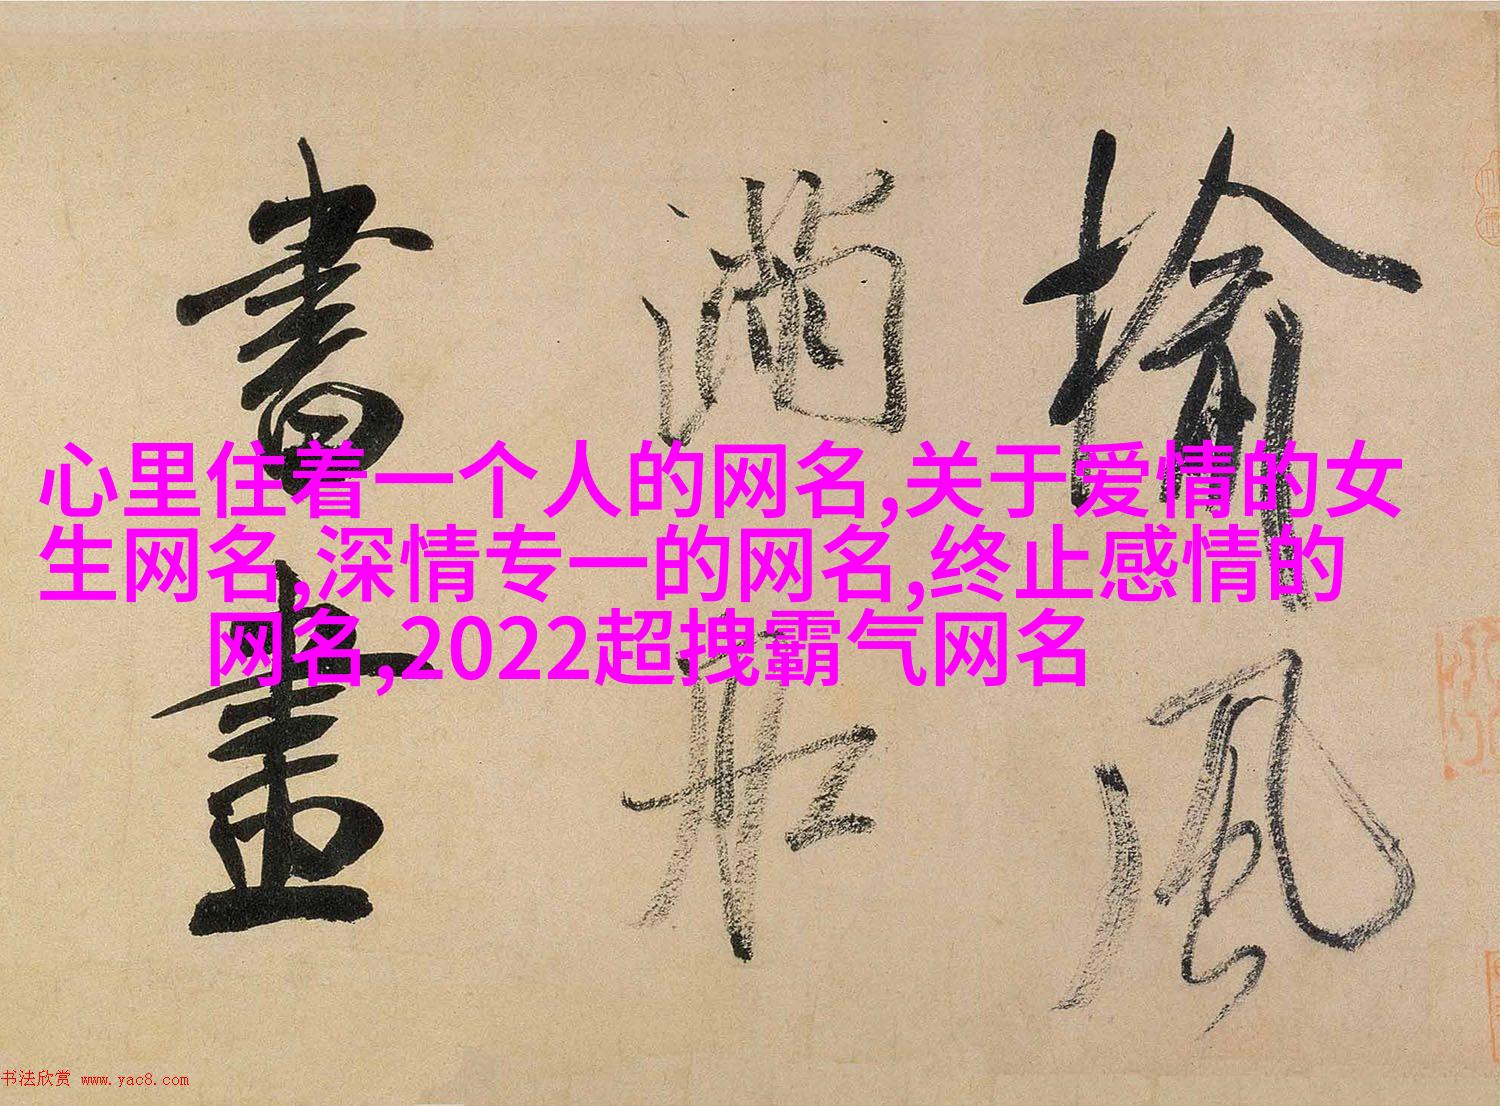 榆風
滿舡
書畫
心里住着一个人的网名,关于爱情的女
生网名,深情专一的网名,终止感情的
网名,2022超拽霸气网名
书法欣赏 www.yac8.com